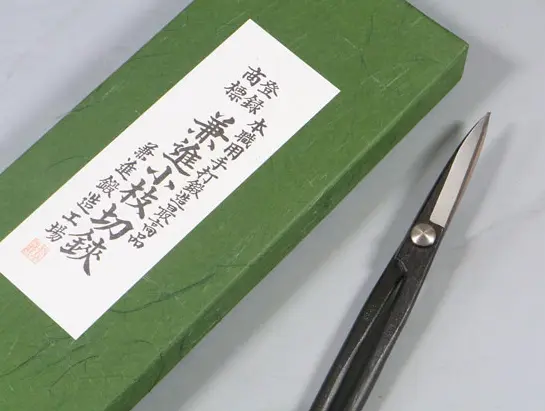 登録
商標
本職用手打鍛造最高品
兼進小枝切鋏
兼進鍛造工場